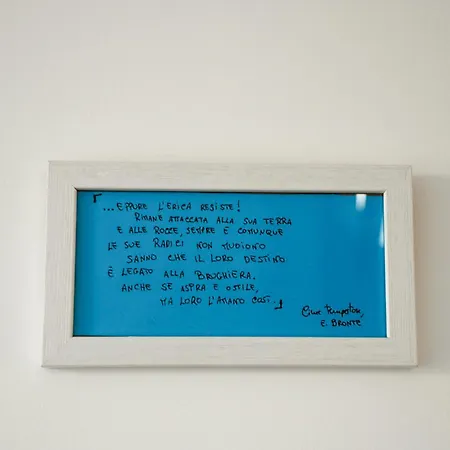 "... EPPURE L'ERICA RESISTE!
RIMANE ATTACCATA ALLA SUA TERRA
E ALLE ROCCE, SEMPRE E COMUNQUE
LE SUE RADICI NON MUOIONO
SANNO CHE IL LORO DESTINO
È LEGATO ALLA BRUGHIERA,
ANCHE SE ASPRA E OSTILE,
MA LORO L'AMANO COSÌ..."
Cime Tempestose,
E. BRONTE